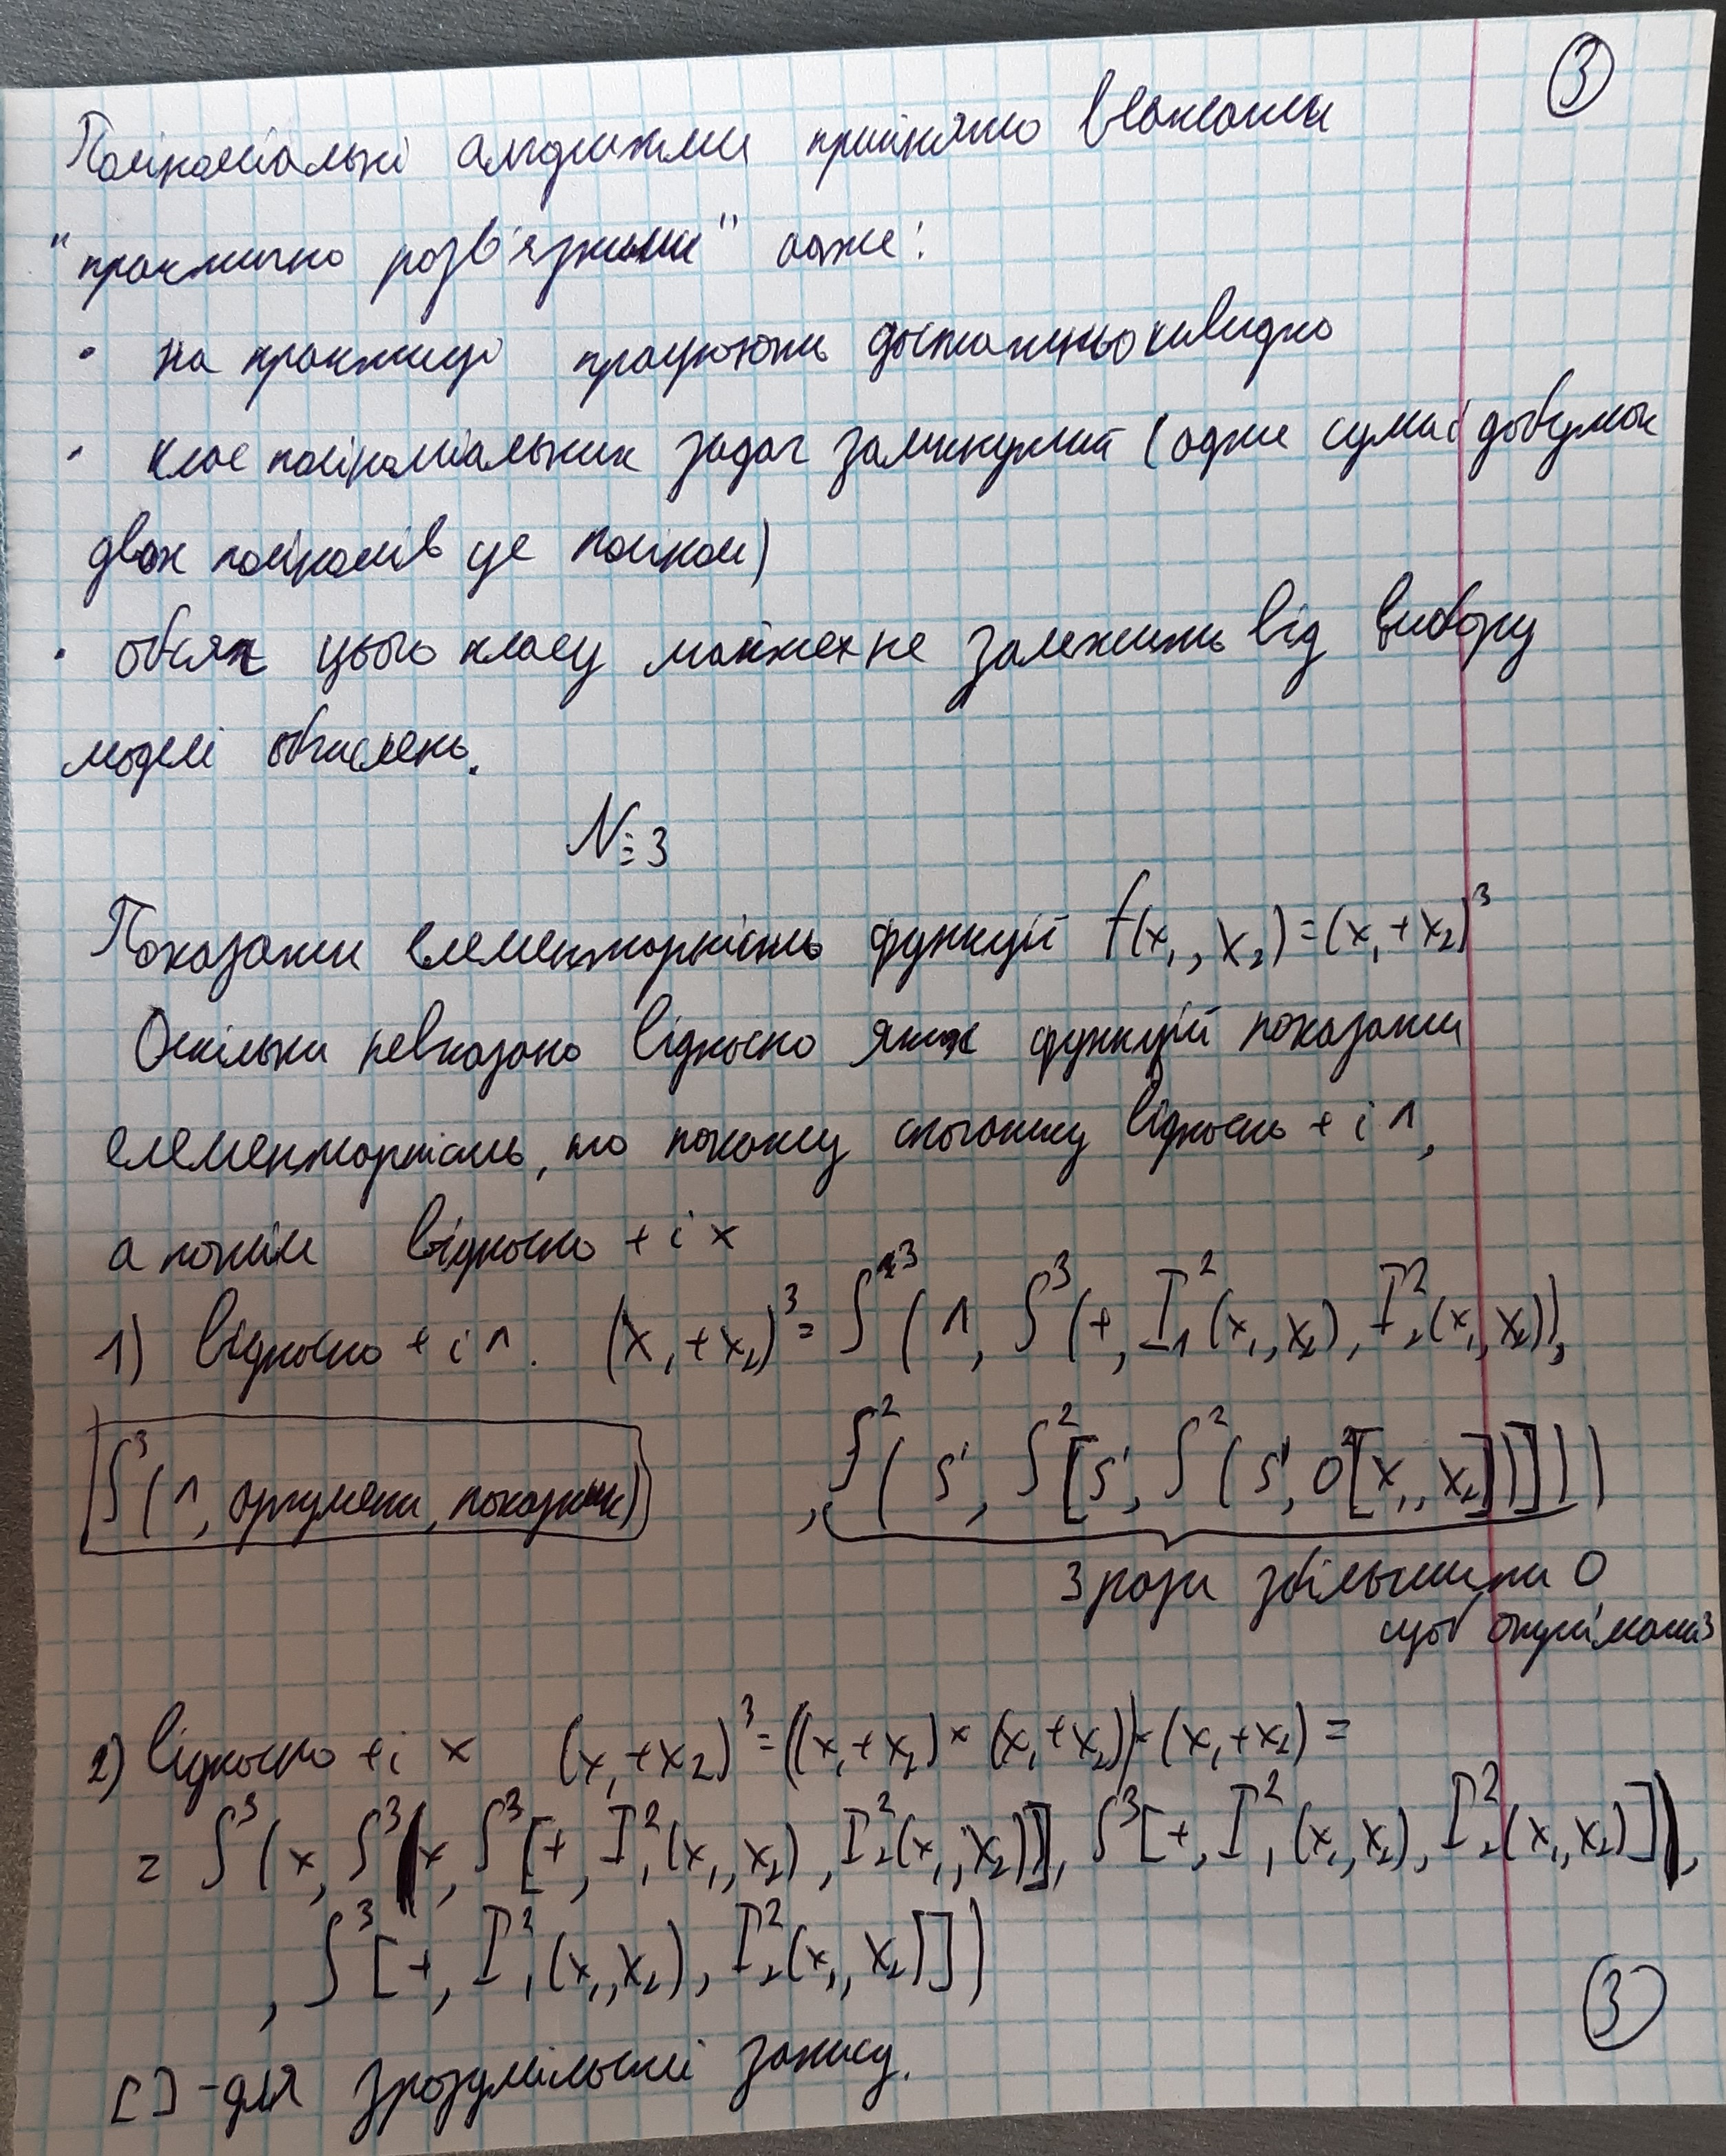 3
Поліноміальні алгоритми прийнято вважати
"практично розв'язними" адже:
• на практиці працюють достатньо швидко
• клас поліноміальних задач замкнутий (адже сума і добуток
двох поліномів це поліном)
• обсяг цього класу майже не залежить від вибору
моделі обчислень.
№3
Показати елементарність функції f(x₁, x₂)=(x₁+x₂)³
Оскільки невказано відносно яких функцій показати
елементарність, то покажу спочатку відносно + і ^,
а потім відносно + і ×
1) відносно + і ^. (x₁+x₂)³= S³(^, S³(+, I₁²(x₁, x₂), I₂²(x₁, x₂)),
S³(^, аргумент, показник)
, S²(S¹, S²[S¹, S²(S¹, O²[x₁, x₂])]))
3 рази збільшити 0
щоб отримати 3
2) відносно + і × (x₁+x₂)³=((x₁+x₂)×(x₁+x₂))×(x₁+x₂)=
= S³(×, S³(×, S³[+, I₁²(x₁, x₂), I₂²(x₁, x₂)], S³[+, I₁²(x₁, x₂), I₂²(x₁, x₂)]),
, S³[+, I₁²(x₁, x₂), I₂²(x₁, x₂)])
3
[ ] - для зрозумілості запису.